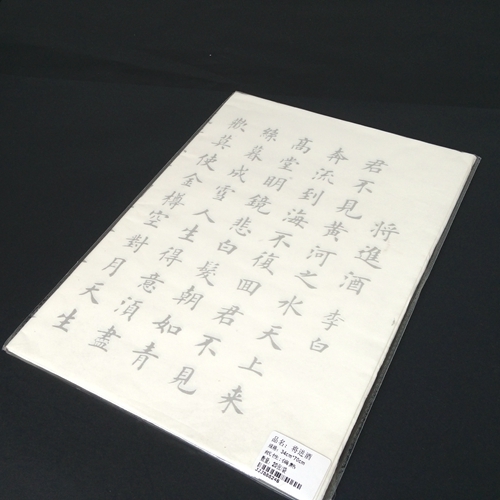 將進酒 李白
君不見黃河之水天上来
奔流到海不復回君不見
高堂明鏡悲白髮朝如青
絲暮成雪人生得意湏盡
歡莫使金樽空對月天生
品名：将进酒
规格：34cm*70cm
数量：20张/袋